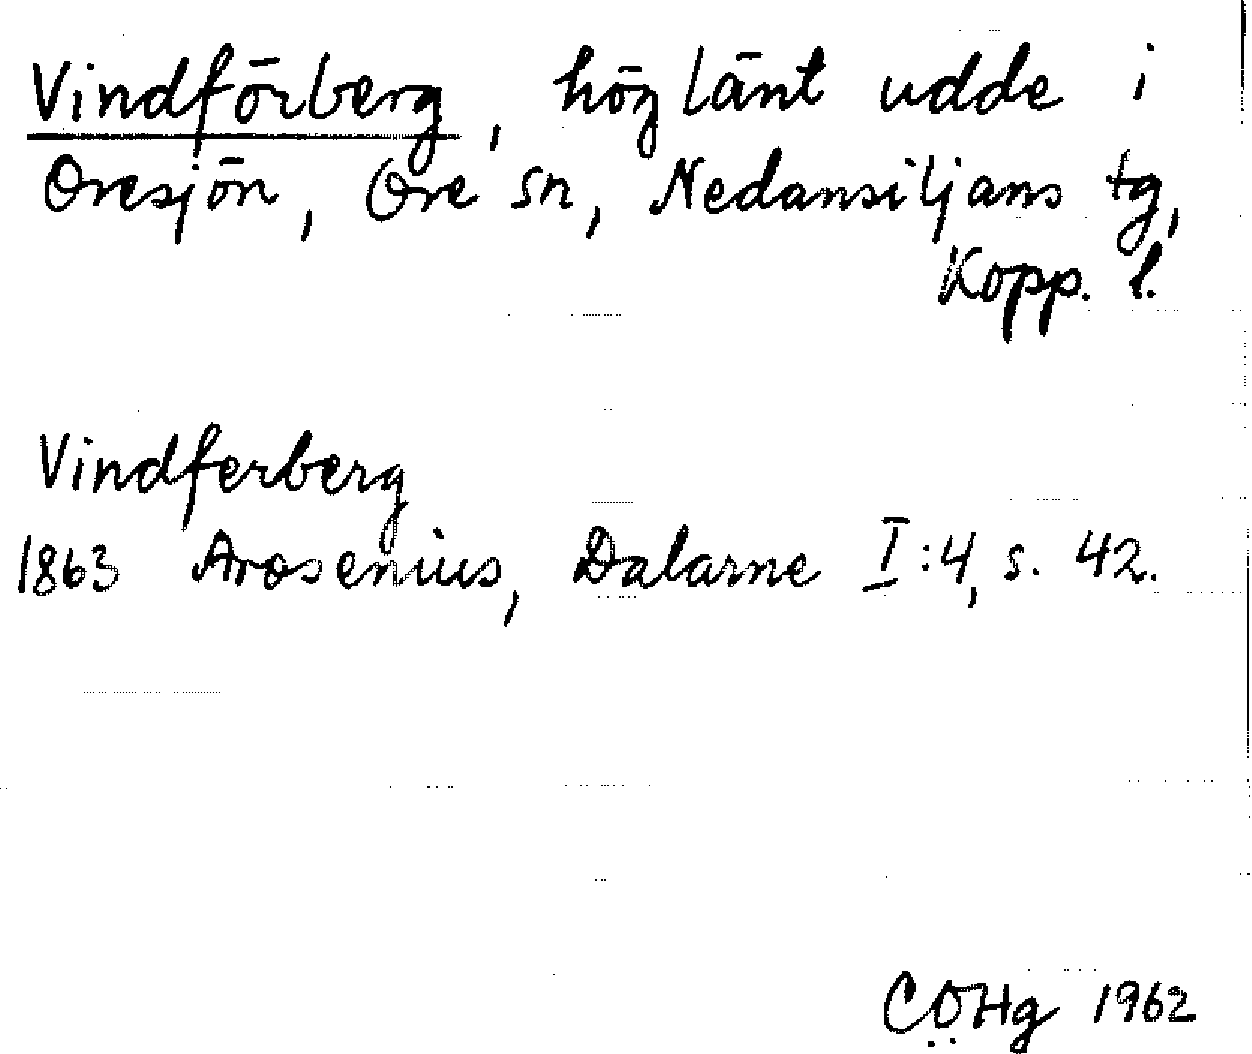 Vindförberg, höglänt udde i
Oresjön, Ore sn, Nedansiljans tg,
Kopp. l.
Vindferberg
1863 Arosenius, Dalarne I:4, s. 42.
CÖHg 1962